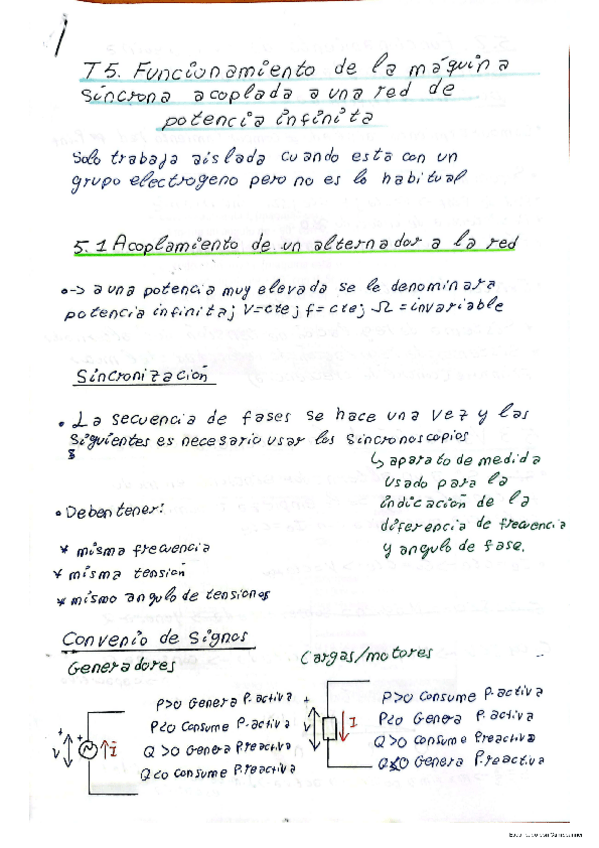 T5. Funcionamiento de la máquina
síncrona acoplada a una red de
potencia infinita
Solo trabaja aislada cuando esta con un
grupo electrogeno pero no es lo habitual
5.1 Acoplamiento de un alternador a la red
•-> a una potencia muy elevada se le denominara
potencia infinita; V=cte; f=cte; Ω = invariable
Sincronización
• La secuencia de fases se hace una vez y las
siguientes es necesario usar los sincronoscopios
↳ aparato de medida
usado para la
indicación de la
diferencia de frecuencia
y angulo de fase.
• Deben tener:
* misma frecuencia
* misma tensión
* mismo angulo de tensiones
Convenio de Signos
Generadores
P>0 Genera P. activa
P<0 Consume P. activa
Q>0 Genera P reactiva
Q<0 Consume P. reactiva
+
V
+
I
Cargas/motores
P>0 Consume P. activa
P<0 Genera P. activa
Q>0 Consume P reactiva
Q<0 Genera P. reactiva
+
V
I